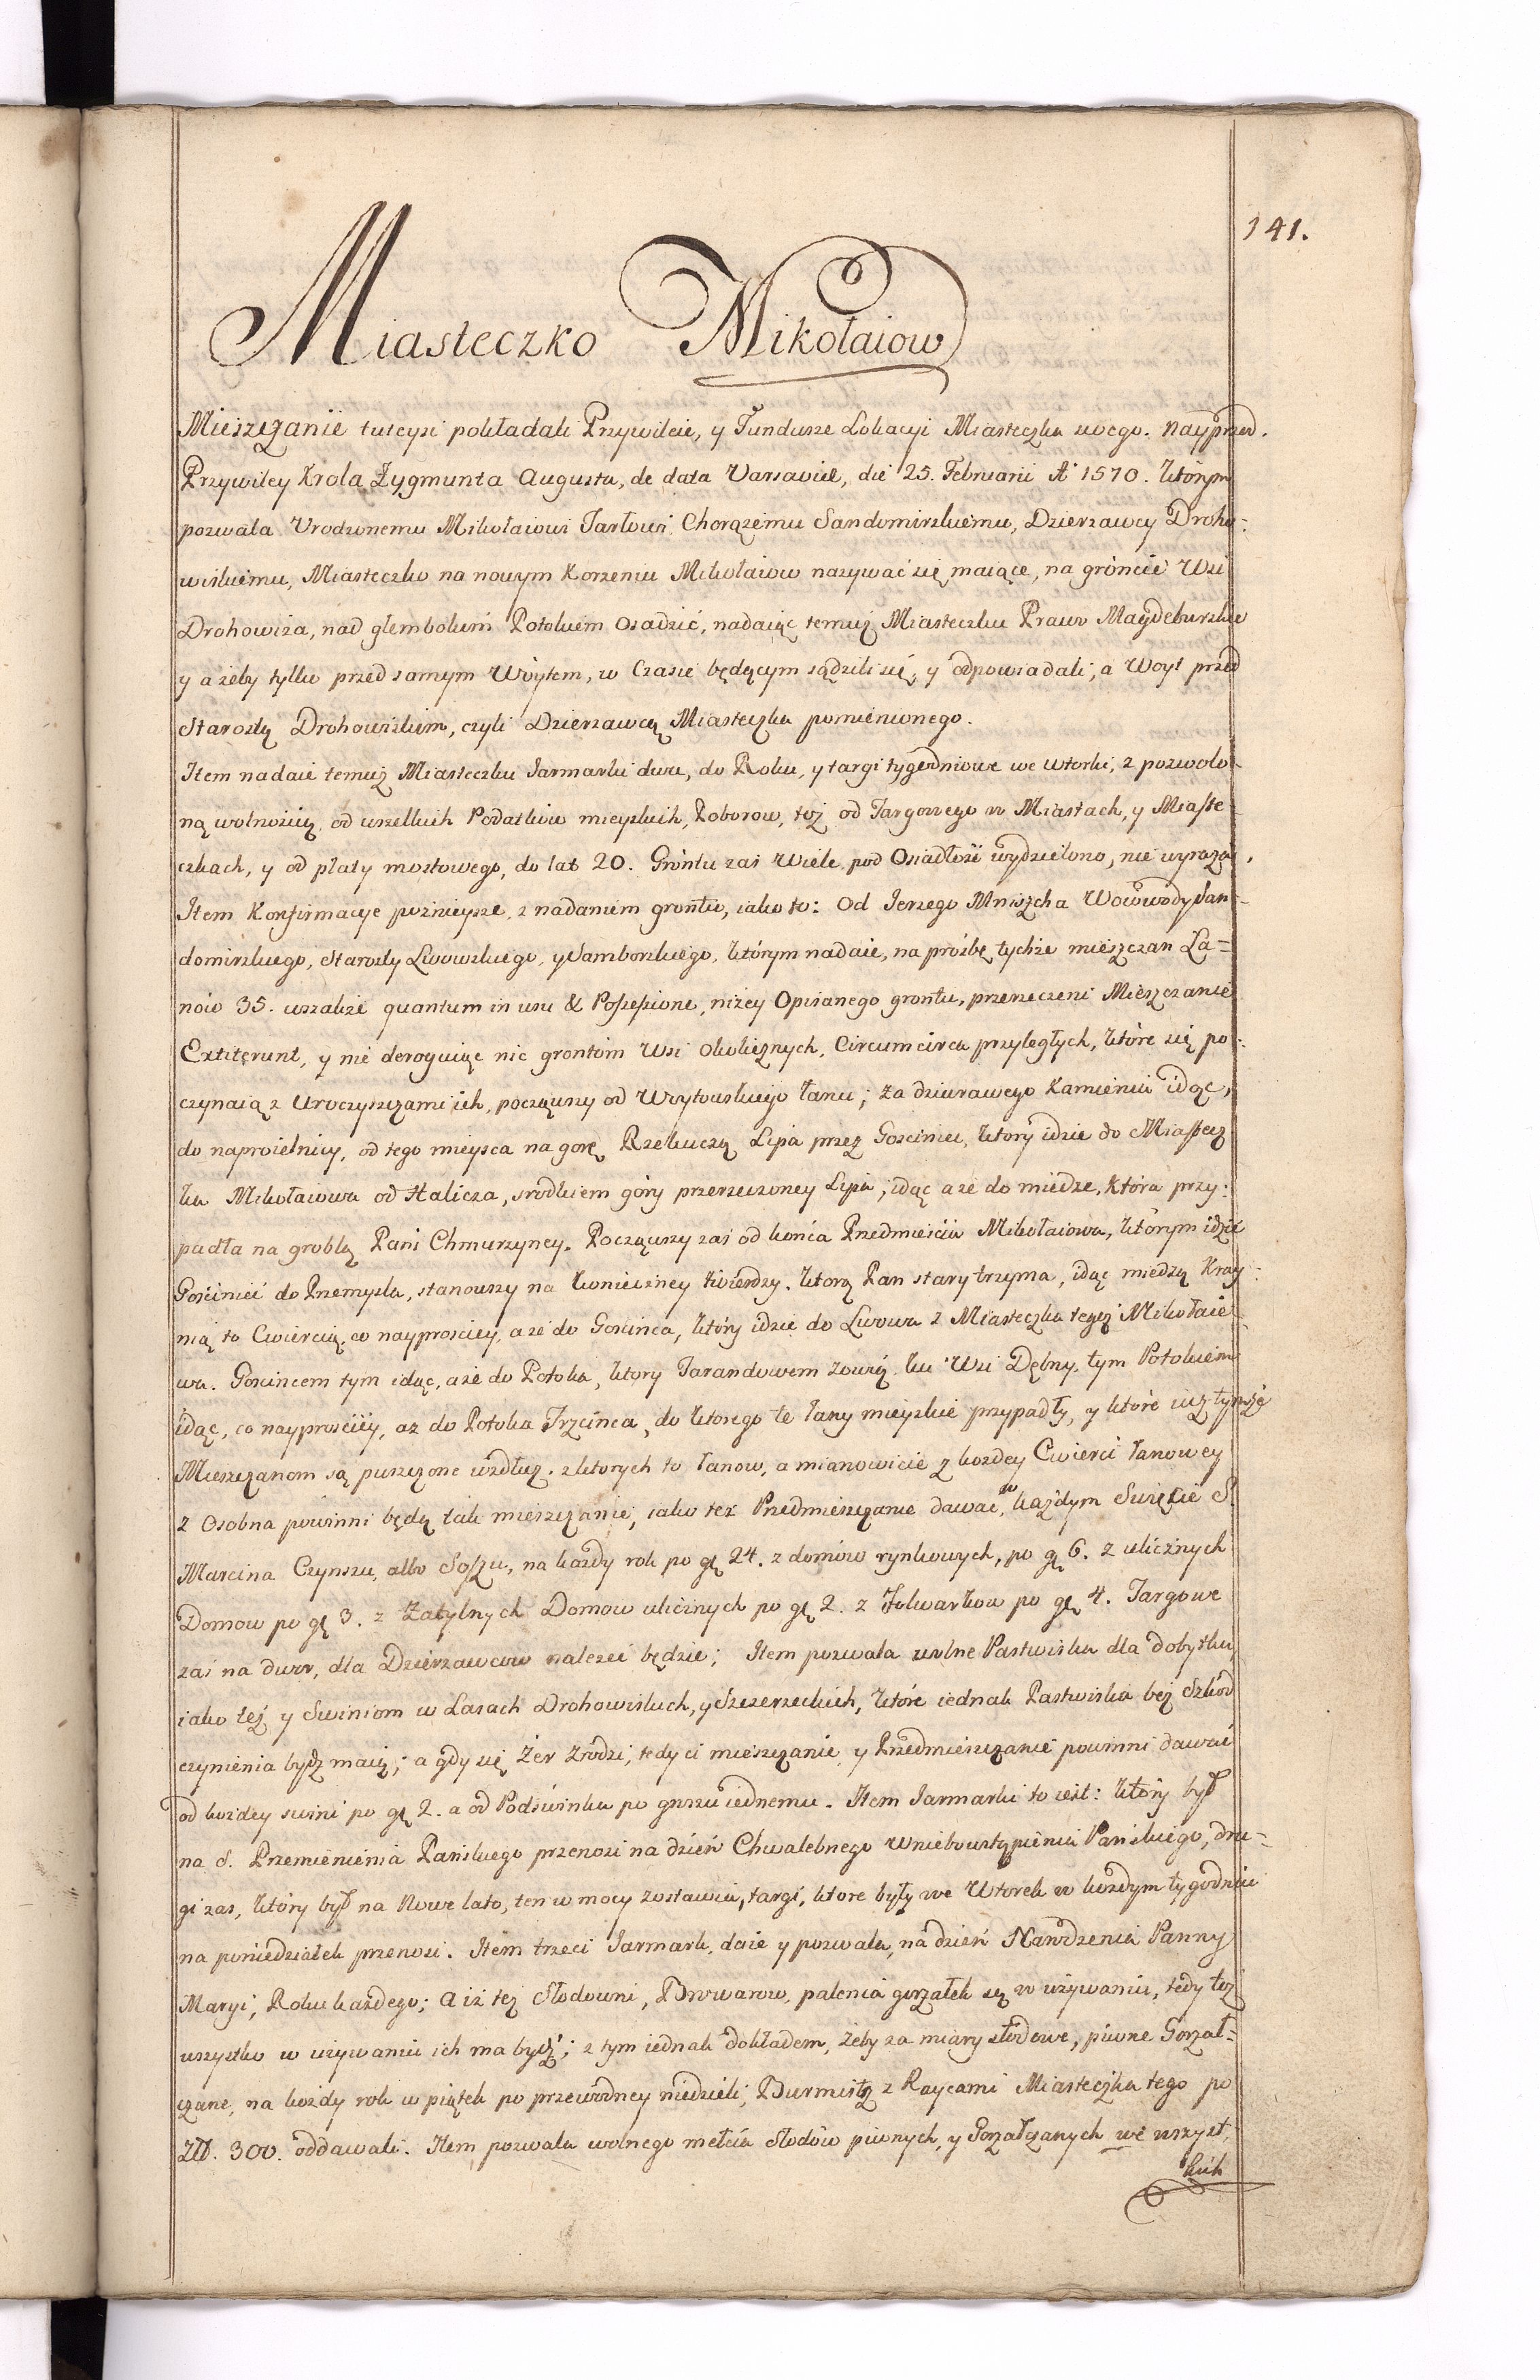 141.
Miasteczko Mikołaiow
Mieszczanie tuteysi pokładali Przywileie, y Fundusze Lokacyi Miasteczka swego. Nayprzod.
Przywiley Krola Zygmunta Augusta, de data Varsaviæ, die 25. Februarii Aº 1570. ktorym
pozwala Urodzonemu Mikołaiowi Jarłowi Chorązemu Sandomirskiemu, Dzierzawcy Droho-
wiskiemu, Miasteczko na nowym Korzeniu Mikołaiow nazywać się maiące, na gróncie Wsi
Drohowiza, nad głembokim Potokiem osadzić, nadaiąc temuz Miasteczku Prawo Magdeburskie
y azeby tylko przed samym Wóytem, w Czasie będącym sądzili się, y odpowiadali, a Woyt przed
Starostą Drohowiskim, czyli Dzierzawcą Miasteczka pomienionego.
Item nadaie temuz Miasteczku Jarmarki dwa, do Roku, y targi tygodniowe we wtorki, z pozwolo-
ną wolnością od wszelkich Podatkow mieyskich, Poborow, toz od Targowego w Miastach, y Miaste-
czkach, y od płaty mostowego, do lat 20. Gróntu zas wiele pod Osiadłość wydzielono, nie wyraza.
Item Konfirmacye poznieysze, z nadaniem grontu, iako to: Od Jerzego Mniszcha Woiewody San-
domirskiego, Starosty Lwowskiego, y Samborskiego, którym nadaie, na prośbę tychże mieszczan Ła-
nów 35. wszakże quantum in usu & Possessione, niżey Opisanego grontu, przerzeczeni Mieszczanie
Extiterunt, y nie deroguiąc nic grontóm Wsi okolicznych, Circumcirca przyległych, które się po-
czynaią z Uroczyszczami ich, począwszy od Wóytowskiego łanu; za dziurawego Kamienia idąc,
do naprośelnicy, od tego mieysca na gorę Rzekuczą Lipa przez Gosciniec, ktory idzie do Miastecz
ka Mikołaiowa od Halicza, srodkiem góry przerzeczoney Lipa; idąc aze do miedze, Ktora przy-
padła na groblą Pani Chmurzyney. Począwszy zaś od końca Przedmieścia Mikołaiowa, ktorym idzie
Gosciniec do Przemysla, stanowszy na konieczney twierdzy. ktorą Pan stary trzyma, idąc miedzą Kray-
nią to Cwiercią, co nayprosciey, aze do Goscinca, który idzie do Lwowa z Miasteczka tegoz Mikołaio
wa. Goscincem tym idąc, aże do Potoka, ktory Tarandowem zowią ku Wsi Dębny, tym Potokiem
idąc, co nayprościey, az do Potoka Trzcinca, do ktorego te łany mieyskie przypadły, y które iuz tymże
Mieszczanom są puszczone wzdłuz. z ktorych to łanow, a mianowicie z kozdey Cwierci łanowey
z osobna powinni będą tak mieszczanie, iako tez Przedmieszczanie dawać w każdym Swięcie S.
Marcina Czynszu, albo Soszu, na kazdy rok po gł 24. z domów rynkowych, po gł 6. z ulicznych
Domow po gł 3. z Zatylnych Domow ulicznych po gł 2. z Folwarkow po gł 4. Targowe
zaś na dwor, dla Dzierzawcow nalezeć będzie; Item pozwala wolne Pastwiska dla dobytku,
iako też y Swiniom w Lasach Drohowiskich, y Szczerzeckich, które iednak Pastwiska bez Szkod
czynienia bydz maią; a gdy się Żer zrodzi, tedy ci mieszczanie y Przedmieszczanie powinni dawać
od kozdey swini po gł 2. a od Podswinka po groszu iednemu. Item Jarmarki to iest: który był
na S. Przemienienia Pańskiego przenosi na dzień Chwalebnego Wniebowstąpienia Pańskiego, dru-
gi zas, który był na Nowe lato, ten w mocy zostawia, targi, ktore były we Wtorek w kozdym tygodniu
na poniedziałek przenosi. Item trzeci Jarmark, daie y pozwala, na dzień Narodzenia Panny
Maryi, Roku każdego; a iż tez Słodowni, Browarow, palenia gorzałek są w używaniu, tedy toz
wszystko w uzywaniu ich ma bydź; z tym iednak dokładem, żeby za miary słodowe, piwne Gorzał-
czane, na kozdy rok w piątek po przewodney niedzieli, Burmistrz z Raycami Miasteczka tego po
Złł. 300. oddawali. Item pozwala wolnego mełcia słodów piwnych, y Gorzałczanych we wszyst-
kich